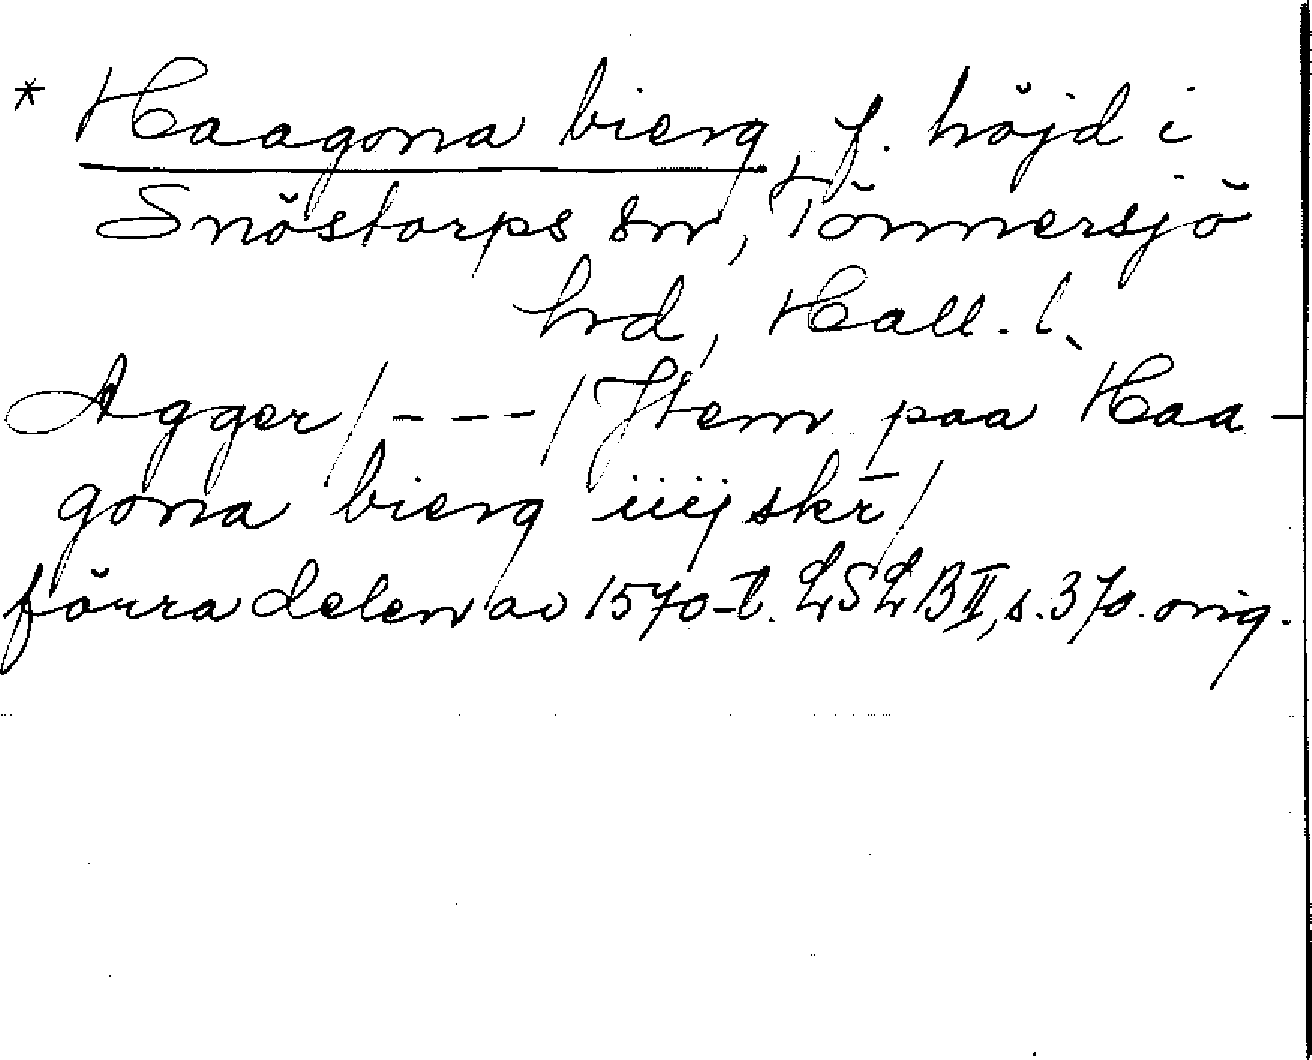 * Haagona bierg, f. höjd i
Snöstorps sn, Tönnersjö
hd, Hall. l.
Agger/---/Jtem paa Haa-
gona bierg iiij skr̄/
förra delen av 1570-t. LSLB II, s. 370. orig.